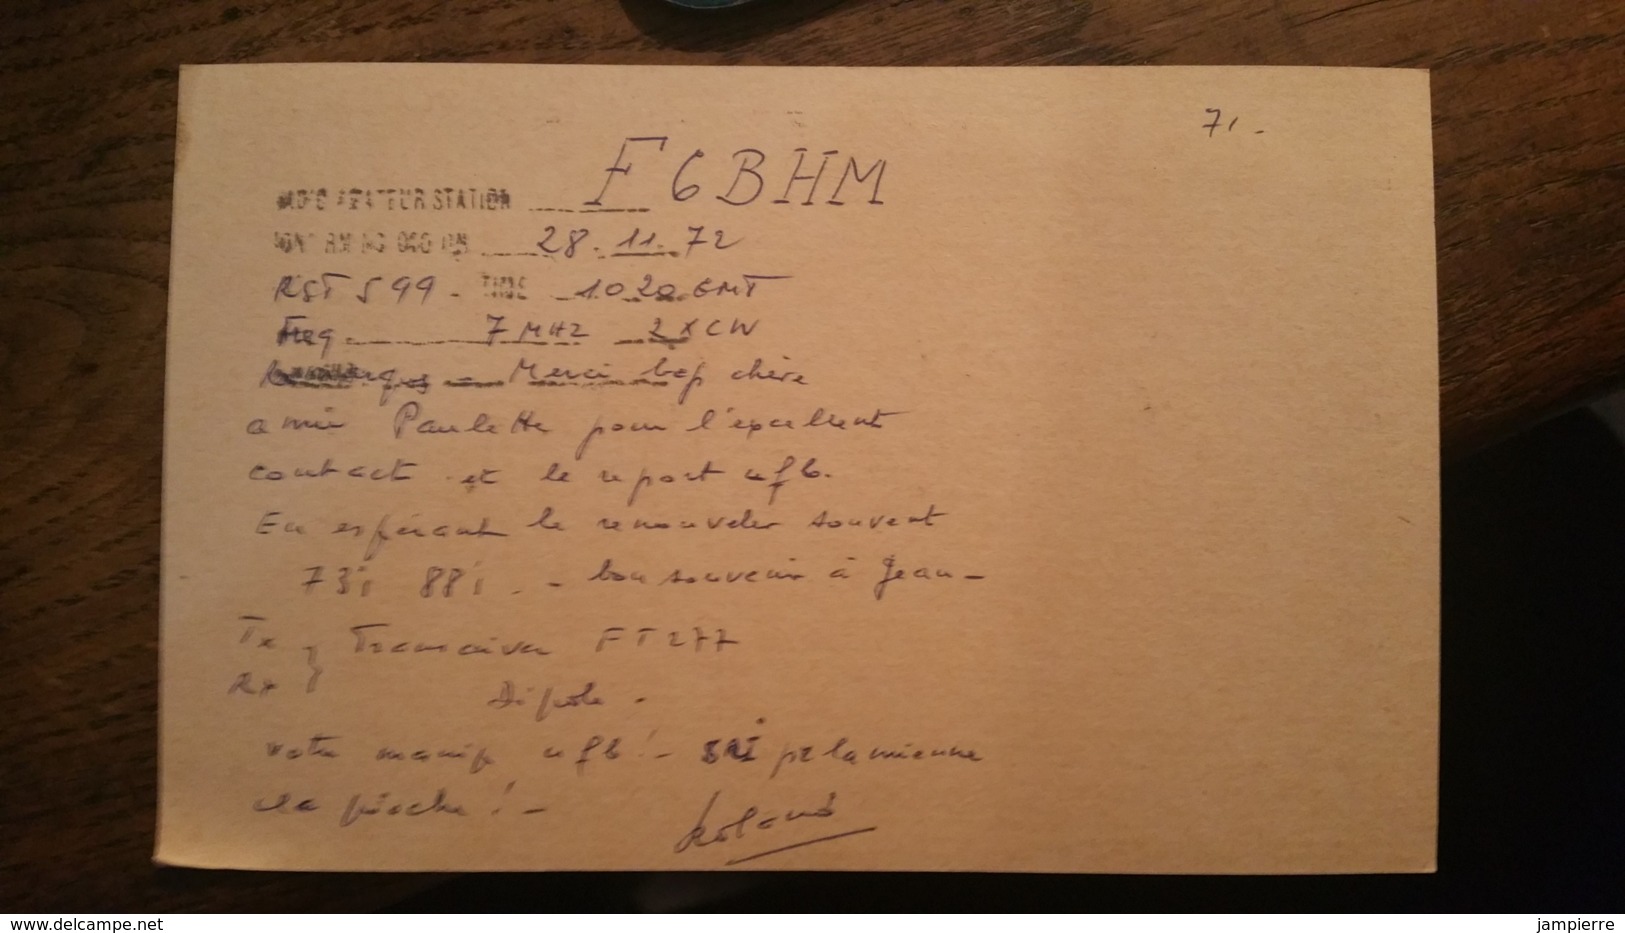 71-
RADIO AMATEUR STATION F6BHM
28.11.72
RST 599 - TIME 1020 GMT
Freq 7 MHz 2XCW
Merci bcp chère
amie Paulette pour l'excellent
contact et le report ufb.
En espérant le renouveler souvent
73i 88i - bon souvenir à Jean-
Tx
Transceiver FT277
Rx
Dipole -
votre manip ufb! - SRI pr la mienne
la pioche! -
Roland
www.delcampe.net
jampierre